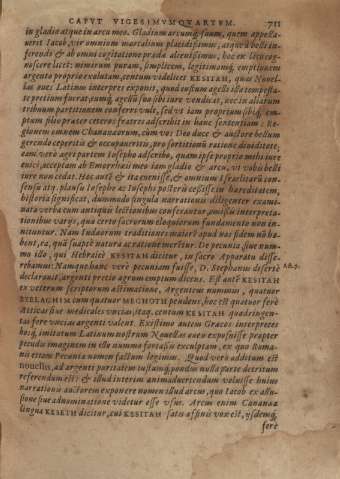 CAPVT VIGESIMVMQVARTVM. 711
in gladio atque in arcu meo. Gladium arcumq́; suum, quem appella-
uerit Iacob, vir omnium mortalium placidissimus, atque à bello in-
ferendi & ab omni cogitatione præda alienissimus, hoc ex loco cog-
noscere licet: nimirum puram, simplicem, legitimamq́; emptionem
argento proprio exolutam, centum videlicet KESITAH, quas Nouel-
las oues Latinus interpres exponit, quod iustum agelli illo tempesta-
te pretium fuerat, quumq́; agellũ suo sibi iure vendicat, nec in aliarum
tribuum partitionem conferre vult, sed vt iam proprium, sibiq́; em-
ptum filio præter ceteros fratres adscribit in hanc sententiam: Re-
gionem omnem Chananæorum, cùm vos Deo duce & auctore bellum
gerendo ceperitis & occupaueritis, pro sortitionū ratione diuidetete;
eam verò agri partem Iosepho adscribo, quam ipse proprio mihi iure
emi, acceptam ab Emorrhæi meo iam gladio & arcu, vt vobis belli
iure non cedat. Hoc autē & ita euenisse, & omnium Israelitarū con-
sensu atq; plausu Iosepho ac Iosephi posteris cessisse in hæreditatem,
historia significat, dummodo singula narrationis diligenter exami-
nata verba cum antiquis lectionibus conferantur, omissis interpreta-
tionibus varijs, quæ certo sacrorum eloquiorum fundamento non in-
nituntur. Nam Iudæorum traditiones maiorē apud nos fidem nō ha-
bent, ea, quā suaptè natura ac ratione meretur. De pecunia, siue num-
mo illo, qui Hebraicè KESITAH dicitur, in sacro Apparatu disse-
rebamus: Namque hanc verè pecuniam fuisse, D. Stephanus disertè
declarauit, argenti pretio agrum emptum dicens. Est autē KESITAH
ex veterum scriptorum æstimatione, Argenteus nummus, quatuor
SEELAGHIM cum quatuor MEGHOTH pendens, hoc est quatuor ferè
Atticas siue medicales vncias, itaq; centum KESITAH quadringen-
tas fere vncias argenti valent. Existimo autem Græcos interpretes
hosq́; imitatum Latinum nostrum Nouellas oues exposuisse propter
pecudis imaginem in illo nummo fortassis exculptam, ex qua Roma-
nis etiam Pecunia nomen factum legimus. Quod verò additum est
nouellus, ad argenti puritatem iustamq́; pondus nulla parte detritum
referendum est: & illud interim animaduertendum velut isse huius
narrationis auctorem exponere nomen illud arcus, quo Iacob ex allu-
sione siue adnominatione videtur esse vsus. Arcus enim Cananæa
lingua KESETH dicitur, cui KESITAH satis affinis vox est, ijsdemq́;
ferè
Act. 7.